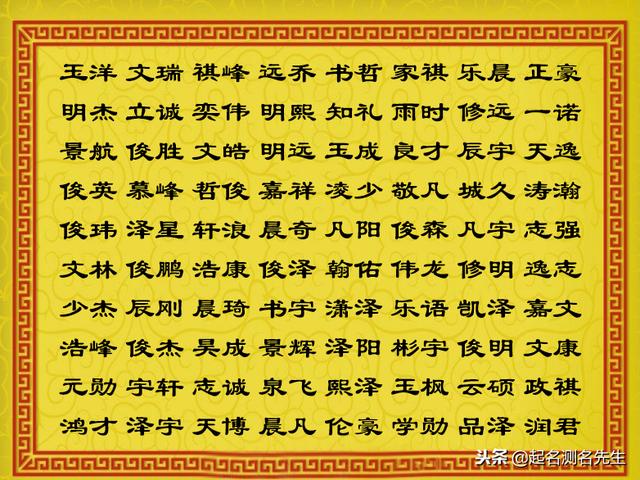 玉洋 文瑞 祺峰 远乔 书哲 家祺 乐晨 正豪
明杰 立诚 奕伟 明熙 知礼 雨时 修远 一诺
景航 俊胜 文皓 明远 玉成 良才 辰宇 天逸
俊英 慕峰 哲俊 嘉祥 凌少 敬凡 城久 涛瀚
俊玮 泽星 轩浪 晨奇 凡阳 俊森 凡宇 志强
文林 俊鹏 浩康 俊泽 翰佑 伟龙 修明 逸志
少杰 辰刚 晨琦 书宇 潇泽 乐语 凯泽 嘉文
浩峰 俊杰 昊成 景辉 泽阳 彬宇 俊明 文康
元勋 宇轩 志诚 泉飞 熙泽 玉枫 云硕 政祺
鸿才 泽宇 天博 晨凡 伦豪 学勋 品泽 润君
头条 @起名测名先生